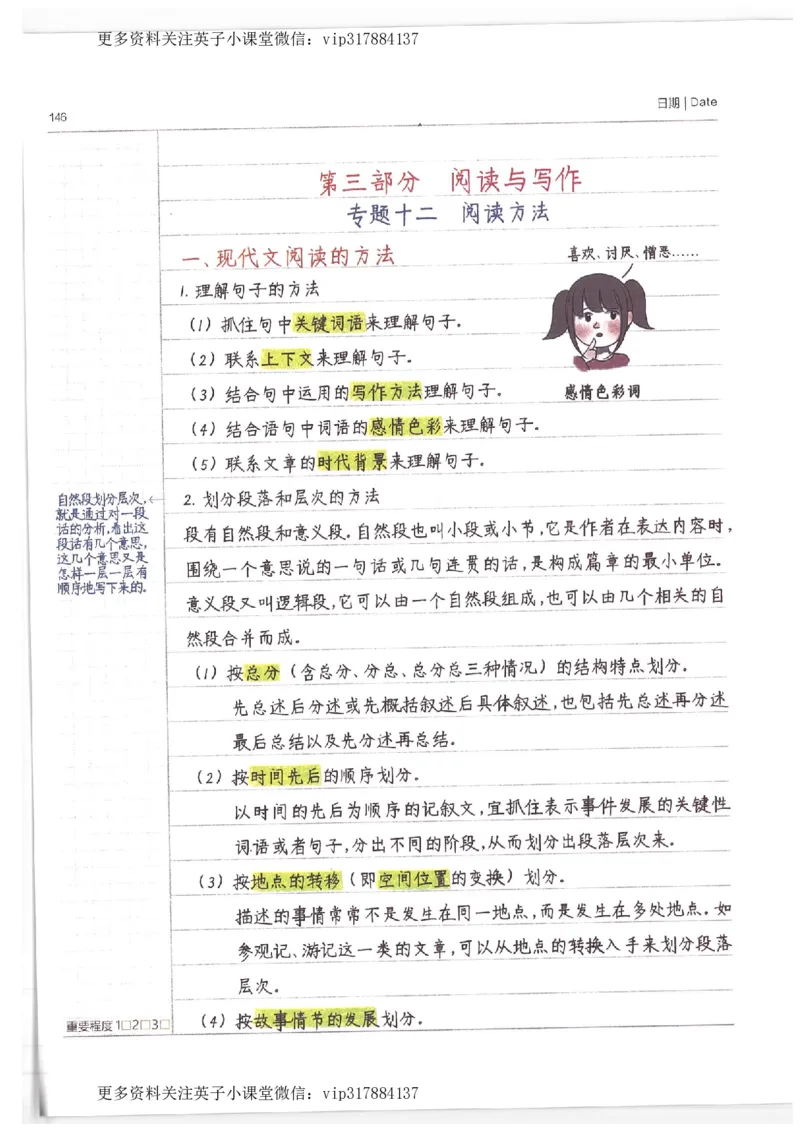 更多资料关注英子小课堂微信：vip317884137
日期 | Date
146
第三部分 阅读与写作
专题十二 阅读方法
一、现代文阅读的方法
喜欢、讨厌、憎恶……
1. 理解句子的方法
（1）抓住句中关键词语来理解句子.
（2）联系上下文来理解句子.
（3）结合句中运用的写作方法理解句子.
感情色彩词
（4）结合语句中词语的感情色彩来理解句子.
（5）联系文章的时代背景来理解句子.
自然段划分层次,
就是通过对一段
话的分析,看出这
段话有几个意思,
这几个意思又是
怎样一层一层有
顺序地写下来的.
2. 划分段落和层次的方法
段有自然段和意义段.自然段也叫小段或小节,它是作者在表达内容时,
围绕一个意思说的一句话或几句连贯的话,是构成篇章的最小单位.
意义段又叫逻辑段,它可以由一个自然段组成,也可以由几个相关的自
然段合并而成.
（1）按总分（含总分、分总、总分总三种情况）的结构特点划分.
先总述后分述或先概括叙述后具体叙述,也包括先总述再分述
最后总结以及先分述再总结.
（2）按时间先后的顺序划分.
以时间的先后为顺序的记叙文,宜抓住表示事件发展的关键性
词语或者句子,分出不同的阶段,从而划分出段落层次来.
（3）按地点的转移（即空间位置的变换）划分.
描述的事情常常不是发生在同一地点,而是发生在多处地点.如
参观记、游记这一类的文章,可以从地点的转换入手来划分段落
层次.
（4）按故事情节的发展划分.
重要程度 1□2□3□
更多资料关注英子小课堂微信：vip317884137